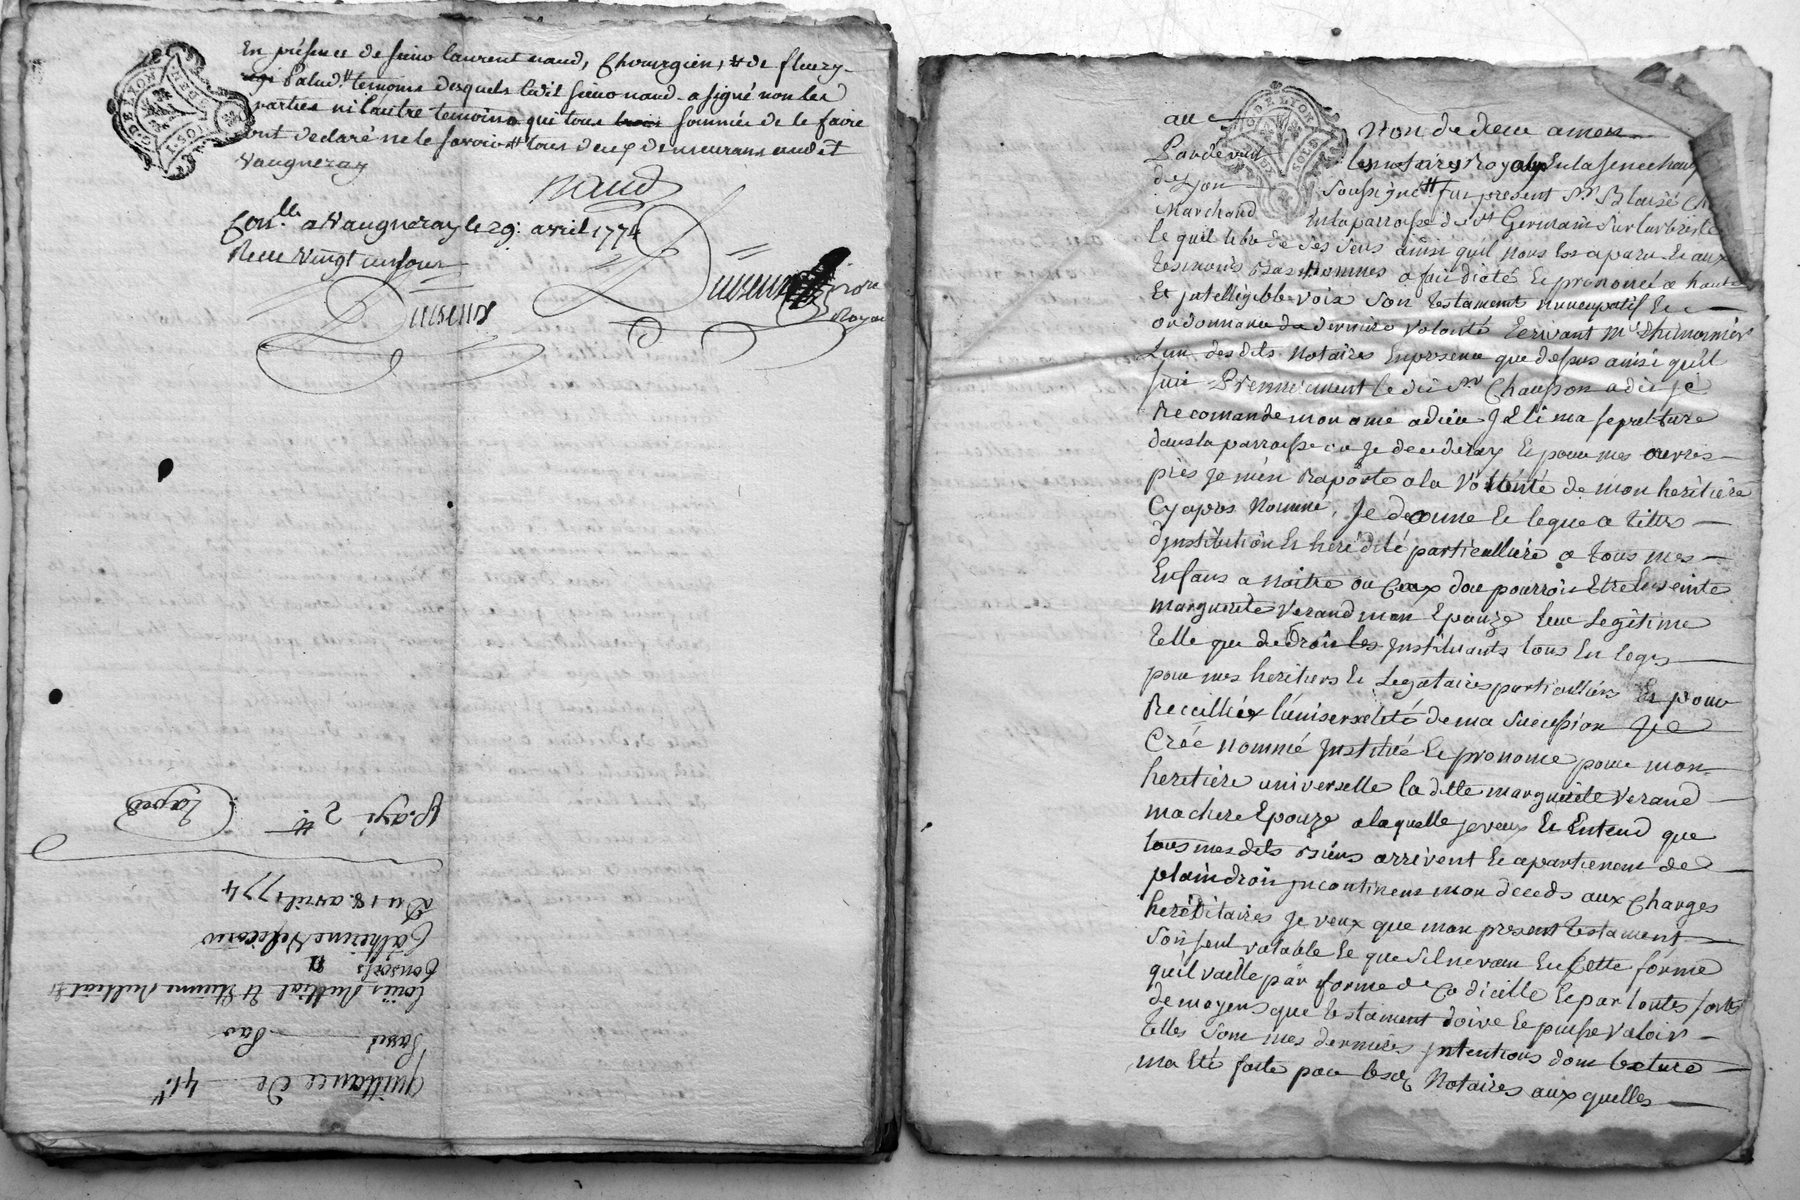 En présence de sieur laurent naud, Chirurgien, et de fleury
Palud temoins desquels ledit sieur naud a signé non les
parties ni l'autre temoins qui tous sommés de le faire
ont declaré ne le savoir tous deux demeurans aud et
Vaugneray
naud
Con.lle a Vaugneray le 29. avril 1774
Recu Vingt un sous
G. DE LYON
quittance de 41
Passé Par
Louis et Etienne
Consorts
Catherine
Du 18. avril 1774
Payé 2
G. DE LYON
au Nom de dieu amen
Pardevant les notaires Royaux En la senechaus
de Lyon soussignés fut present Sr Blaise Ch
Marchand En la parroisse de St Germain Sur larbresle
le quel libre de ses sens ainsi qu'il nous est aparu Et aux
temoins Bas nommes a fait dicté Et prononcé a haute
Et jntelligible voix Son testament nuncupatif Et
ordonnance de derniere volonté Ecrivant Me
L'un des dits Notaires En presence que dessus ainsi qu'il
suit Premierement le dit Sr Chausson a dit je
Recomande mon ame a dieu J'Eli ma sepulture
dans la parroisse ou Je decederay Et pour mes œuvres
pies Je m'en Raporte a la Volonté de mon heritiere
Cy apres Nommé, Je donne Et legue a titre
d'jnstitution Et heredité particulliere a tous mes
Enfans a naitre ou Ceux dou pourroit Etre Enseinte
marguerite Verand mon Epouze leur Legitime
telle que de Droit les jnstituants tous En leges
pour mes heritiers Et Legataires particulliers Et pour
Recueillier l'universalité de ma Succession Je
Créé nommé Jnstitué Et pronome pour mon
heritiere universelle la ditte marguerite Verand
ma chere Epouze a laquelle je veux Et Entend que
tous mes dits Biens arrivent Et apartienent de
plain droit jncontinent mon déceds aux Charges
hereditaires Je veux que mon present testament
soit seul valable Et que Sil ne vaut En Cette forme
qu'il vaille par forme de Codicille Et par toutes sortes
de moyens que testament doive Et puisse valoir
telles Sont mes dernieres jntentions dont lecture
ma Eté faite par lesd. Notaires aux quelles